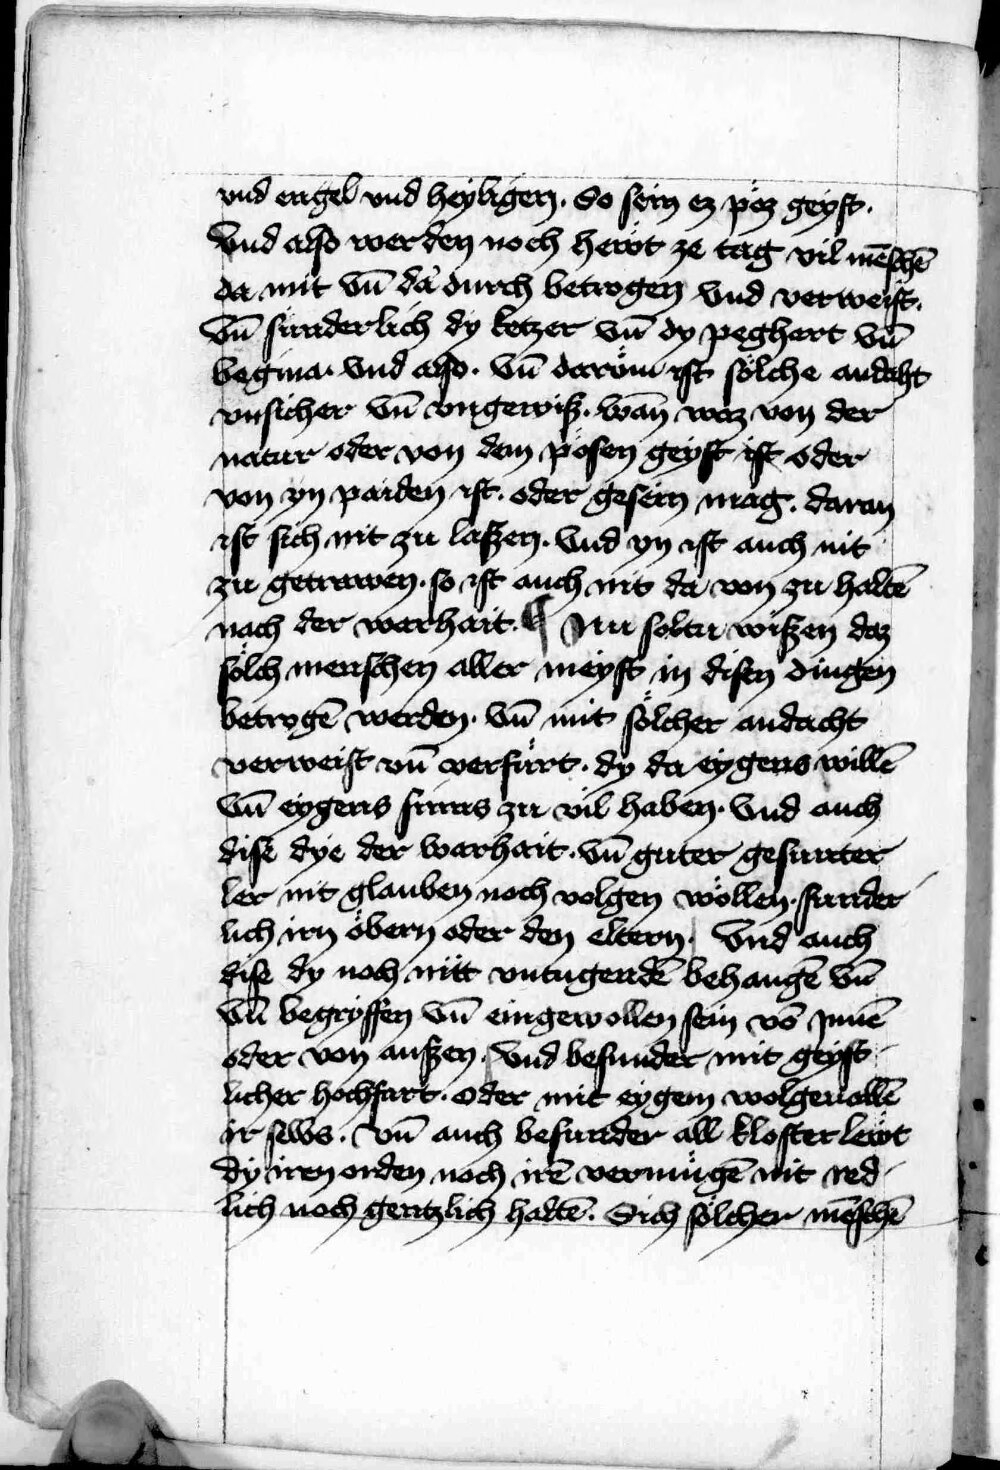 vnd engel vnd heyligen. So sein ez pöz geyst.
Vnd also werden noch hewt ze tag vil mēschē
da mit vn̄ da durch betrogen vnd verweist.
Vn̄ sunderlich dy ketzer vn̄ dy peghart vn̄
begina. vnd also. vn̄ daröm ist sölche andaht
vnsicher vn̄ vngewiß. wan̄ waz von der
natur oder von dem pösen geyst ist oder
von yn paiden ist. oder gesein mag. daran
ist sich nit zu laßen. vnd yn ist auch nit
zu getrawen. so ist auch nit da von zu haltē
nach der warhait. ¶ Nu soltu wißen daz
sölch menschen aller meyst in disen dingen
betrogē werden. vn̄ mit sölcher andacht
verweist vn̄ verfürt. dy da eygens willē
vn̄ eygens sinns zu vil haben. vnd auch
dise dye der warhait. vn̄ guter gesunter
ler nit glauben noch volgen wöllen. sunder
lich irn öbern oder den eltern. Vnd auch
dise dy noch mitt vntugendē behangē vn̄
vn̄ begryffen vn̄ eingewollen sein vō Jnnē
oder von außen. Vnd besunder mit geyst-
licher hochfart. oder mit eygem wolgeuallē
ir selbs. vn̄ auch besunder all kloster lewt
dy iren orden noch irē vermügē nit red-
lich noch gentzlich haltē. Sich sölcher mēschē